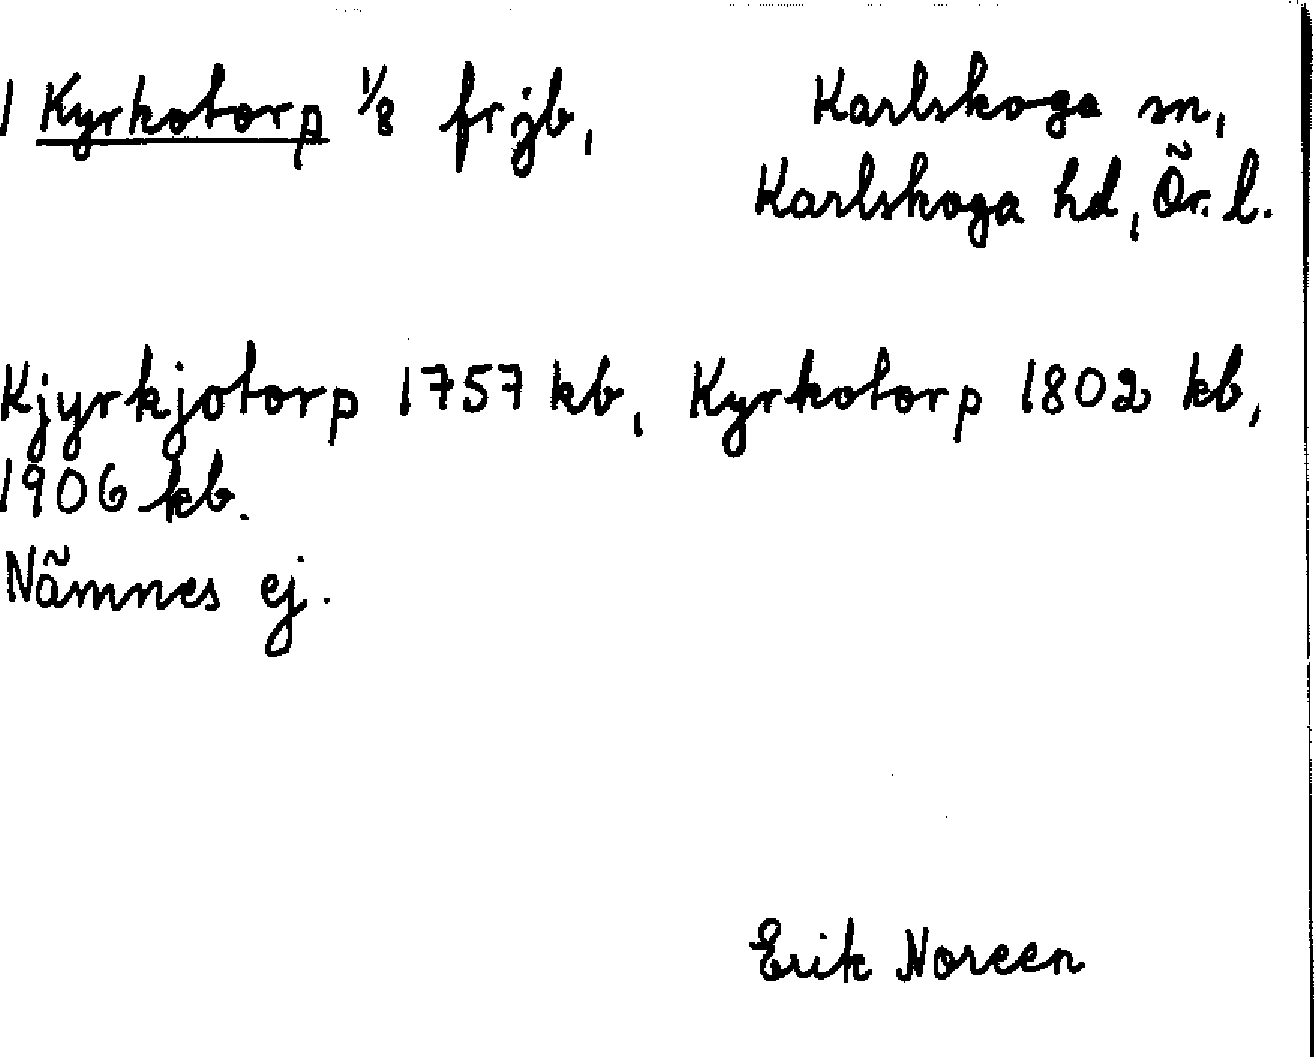 1 Kyrkotorp 1/8 frjb,
Karlskoga sn,
Karlskoga hd, Ör. l.
Kjyrkjotorp 1757 kb, Kyrkotorp 1802 kb,
1906 kb.
Nämnes ej.
Erik Noreen